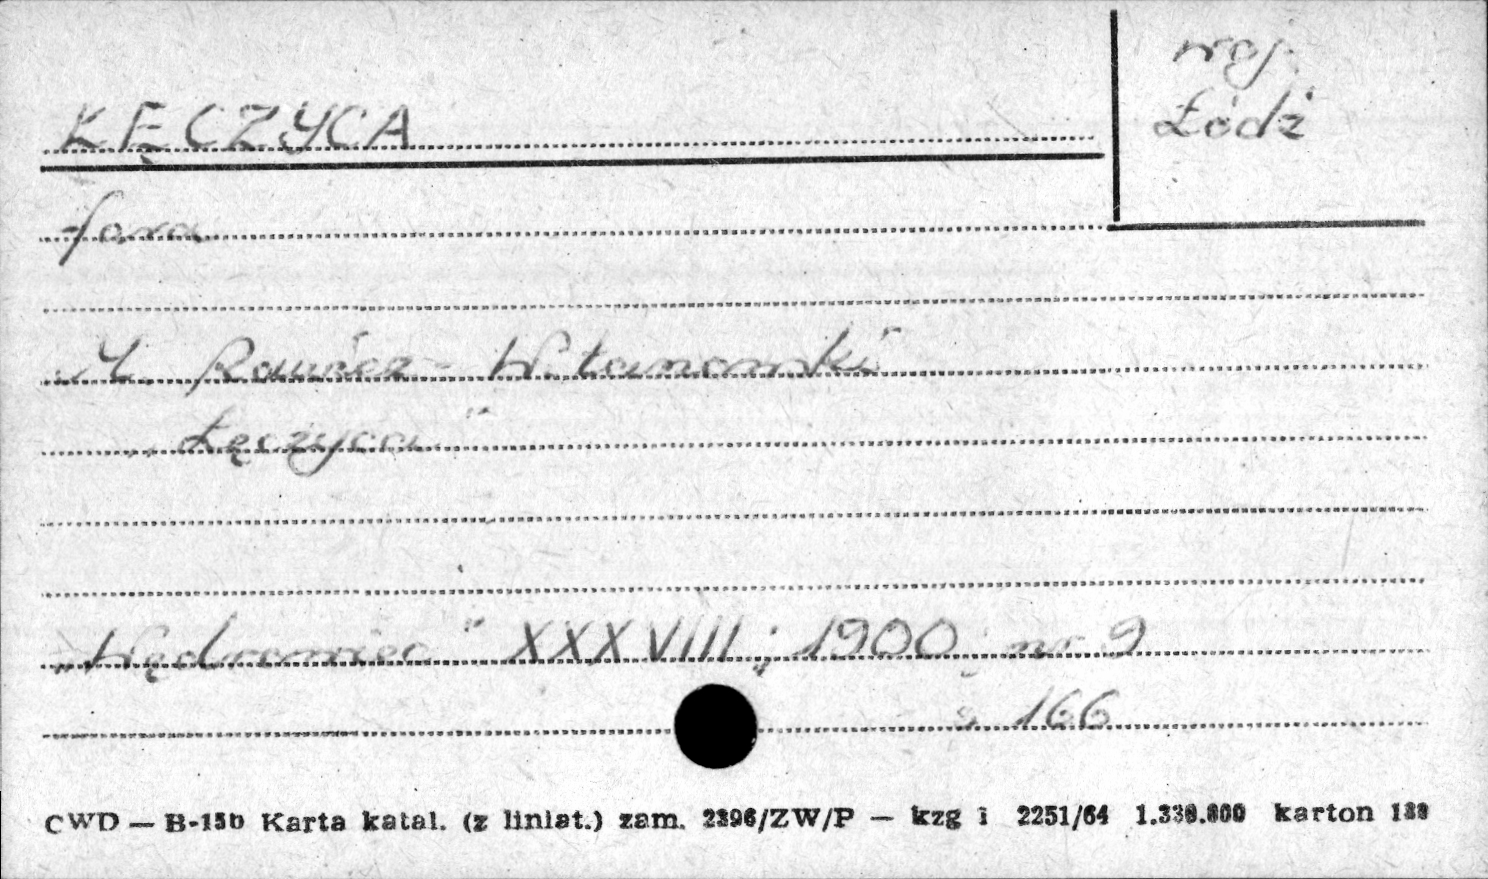 woj.
Łódź
ŁĘCZYCA
fara
M. Rawicz-Witanowski
„Łęczyca"
„Wędrowiec" XXXVIII; 1900; nr 9
s. 166
CWD — B-15b Karta katal. (z liniat.) zam. 2396/ZW/P — kzg i 2251/64 karton